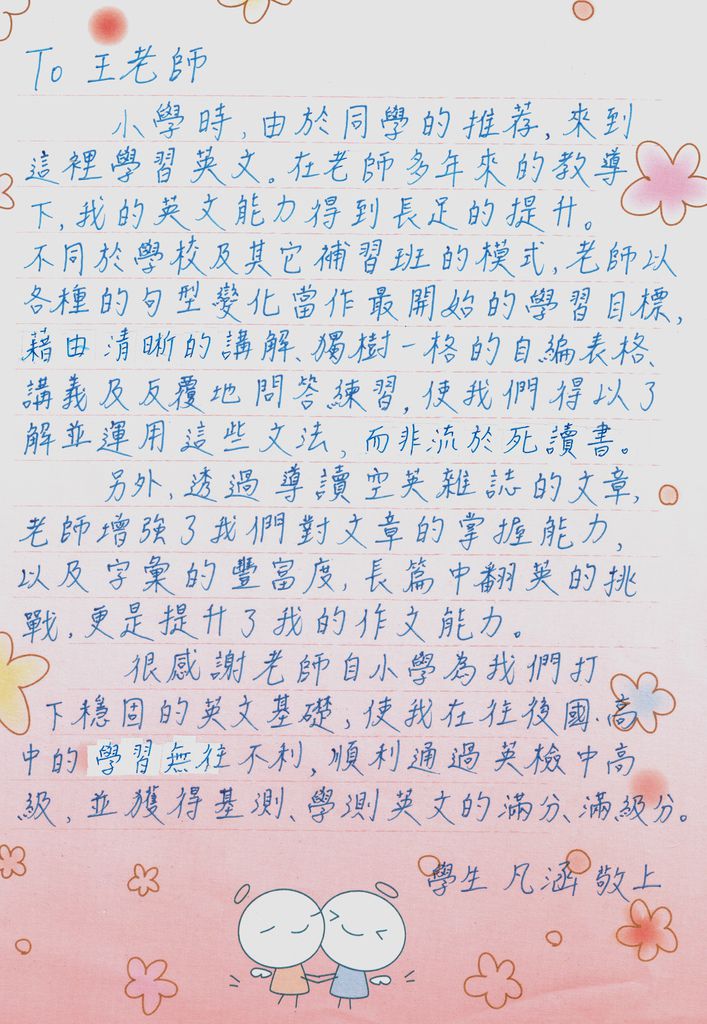 To 王老師
小學時,由於同學的推荐,來到
這裡學習英文。在老師多年來的教導
下,我的英文能力得到長足的提升。
不同於學校及其它補習班的模式,老師以
各種的句型變化當作最開始的學習目標,
藉由清晰的講解、獨樹一格的自編表格、
講義及反覆地問答練習,使我們得以了
解並運用這些文法,而非流於死讀書。
另外,透過導讀空英雜誌的文章,
老師增強了我們對文章的掌握能力,
以及字彙的豐富度,長篇中翻英的挑
戰,更是提升了我的作文能力。
很感謝老師自小學為我們打
下穩固的英文基礎,使我在往後國、高
中的學習無往不利,順利通過英檢中高
級,並獲得基測、學測英文的滿分、滿級分。
學生 凡涵 敬上